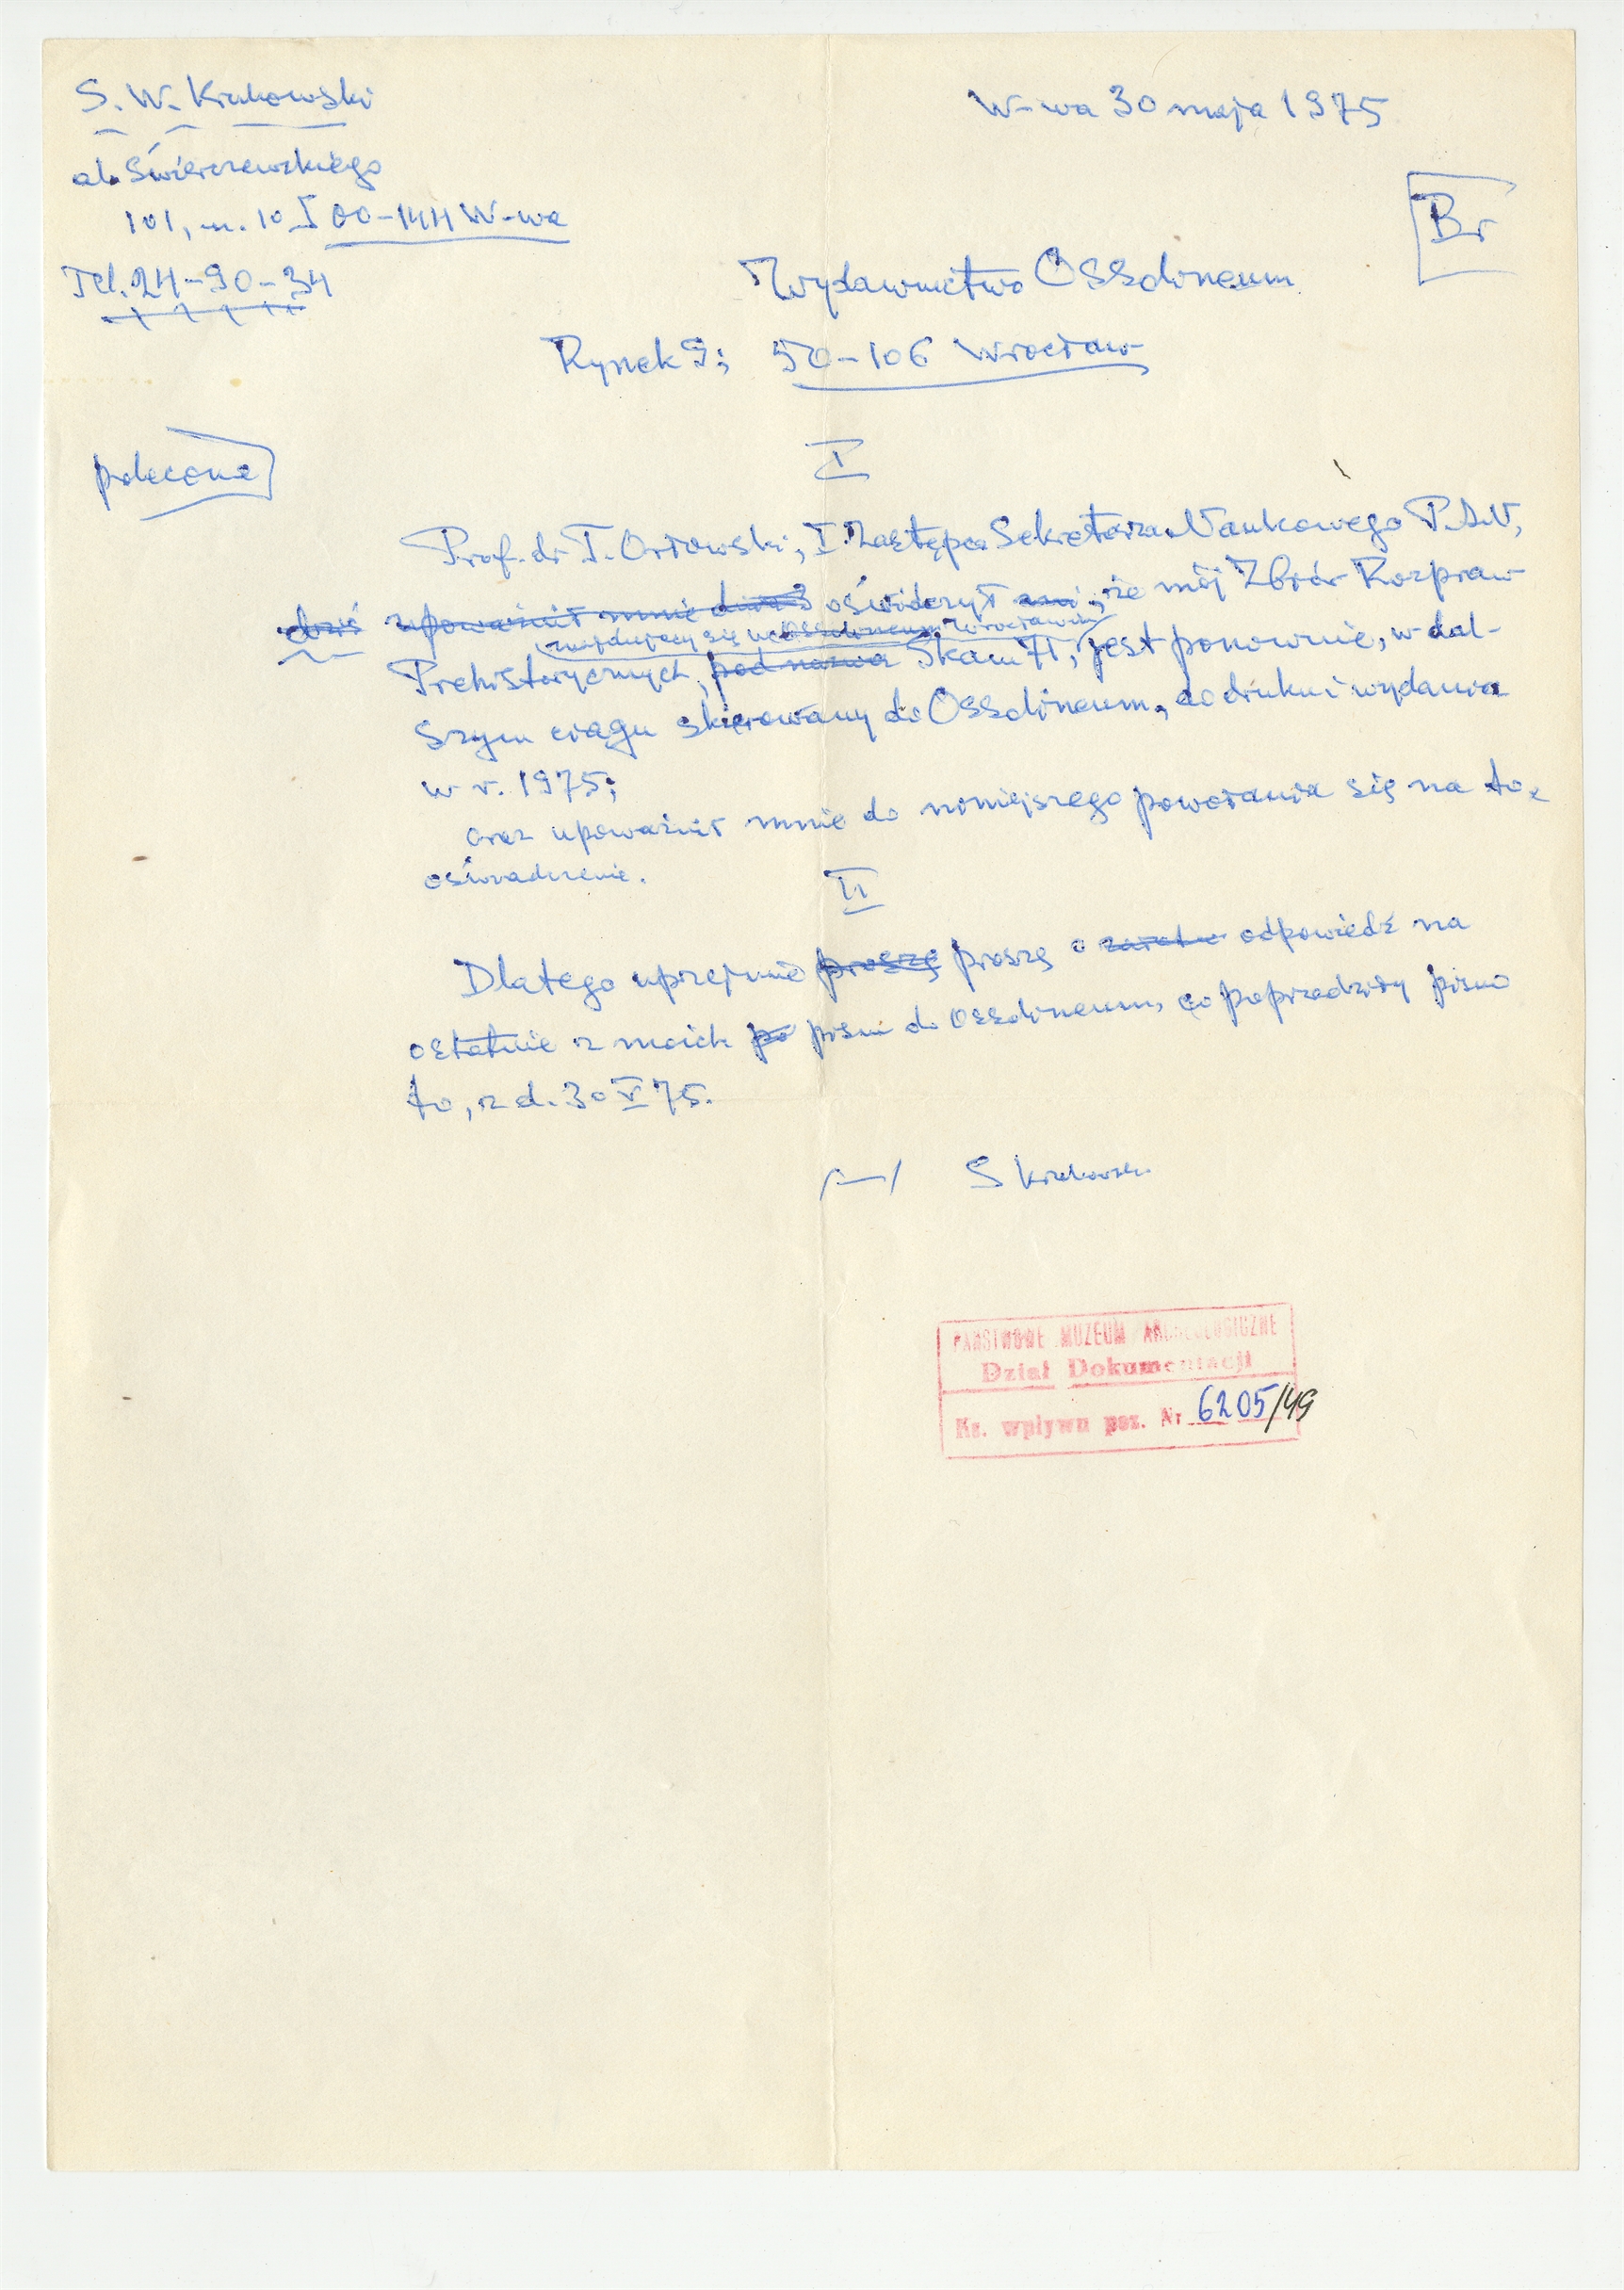 S. W. Krukowski
W-wa 30 maja 1975
al. Świerczewskiego
101, m. 10 I 00-144 W-wa
Br
Tel. 24-90-34
Wydawnictwo Ossolineum
Rynek 9; 50-106 Wrocław
polecone
I
Prof. dr T. Orłowski, I Zastępca Sekretarza Naukowego P.A.N,
dziś upoważnił mnie oświdczył mi, że mój Zbiór Rozpraw
znajdujący się we Ossolineum Wrocławiu
Prehistorycznych, pod nazwa Skam 71, jest ponownie, w dal-
szym ciągu skierowany do Ossolineum, do druku i wydania
w r. 1975;
oraz upoważnił mnie do niniejszego powołania się na to
oświadczenie.
II
Dlatego uprzejmie proszę proszę o odpowiedź na
ostatnie z moich po pism do Ossolineum, co poprzedziły pismo
to, z d. 30 V 75.
/—/ S Krukowski
PAŃSTWOWE MUZEUM ARCHEOLOGICZNE
Dział Dokumentacji
Ks. wpływu poz. Nr 6205/49